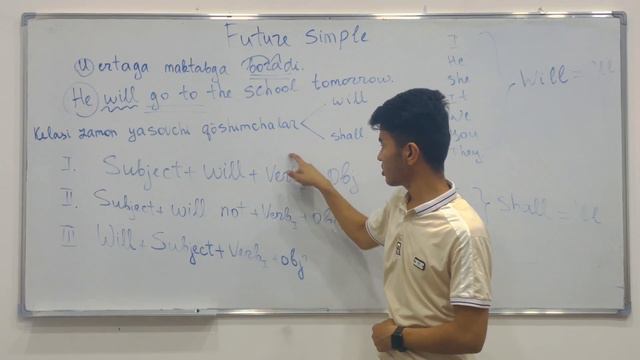 Future Simple
U ertaga maktabga boradi.
He will go to the school tomorrow.
Kelasi zamon yasovchi qo'shimchalar
will
shall
I. Subject + Will + Verb Obj
II. Subject + will not + Verb I + obj
III Will + Subject + Verb I + obj?
I
He
She
It
We
You
They
Will = 'll
Shall = 'll